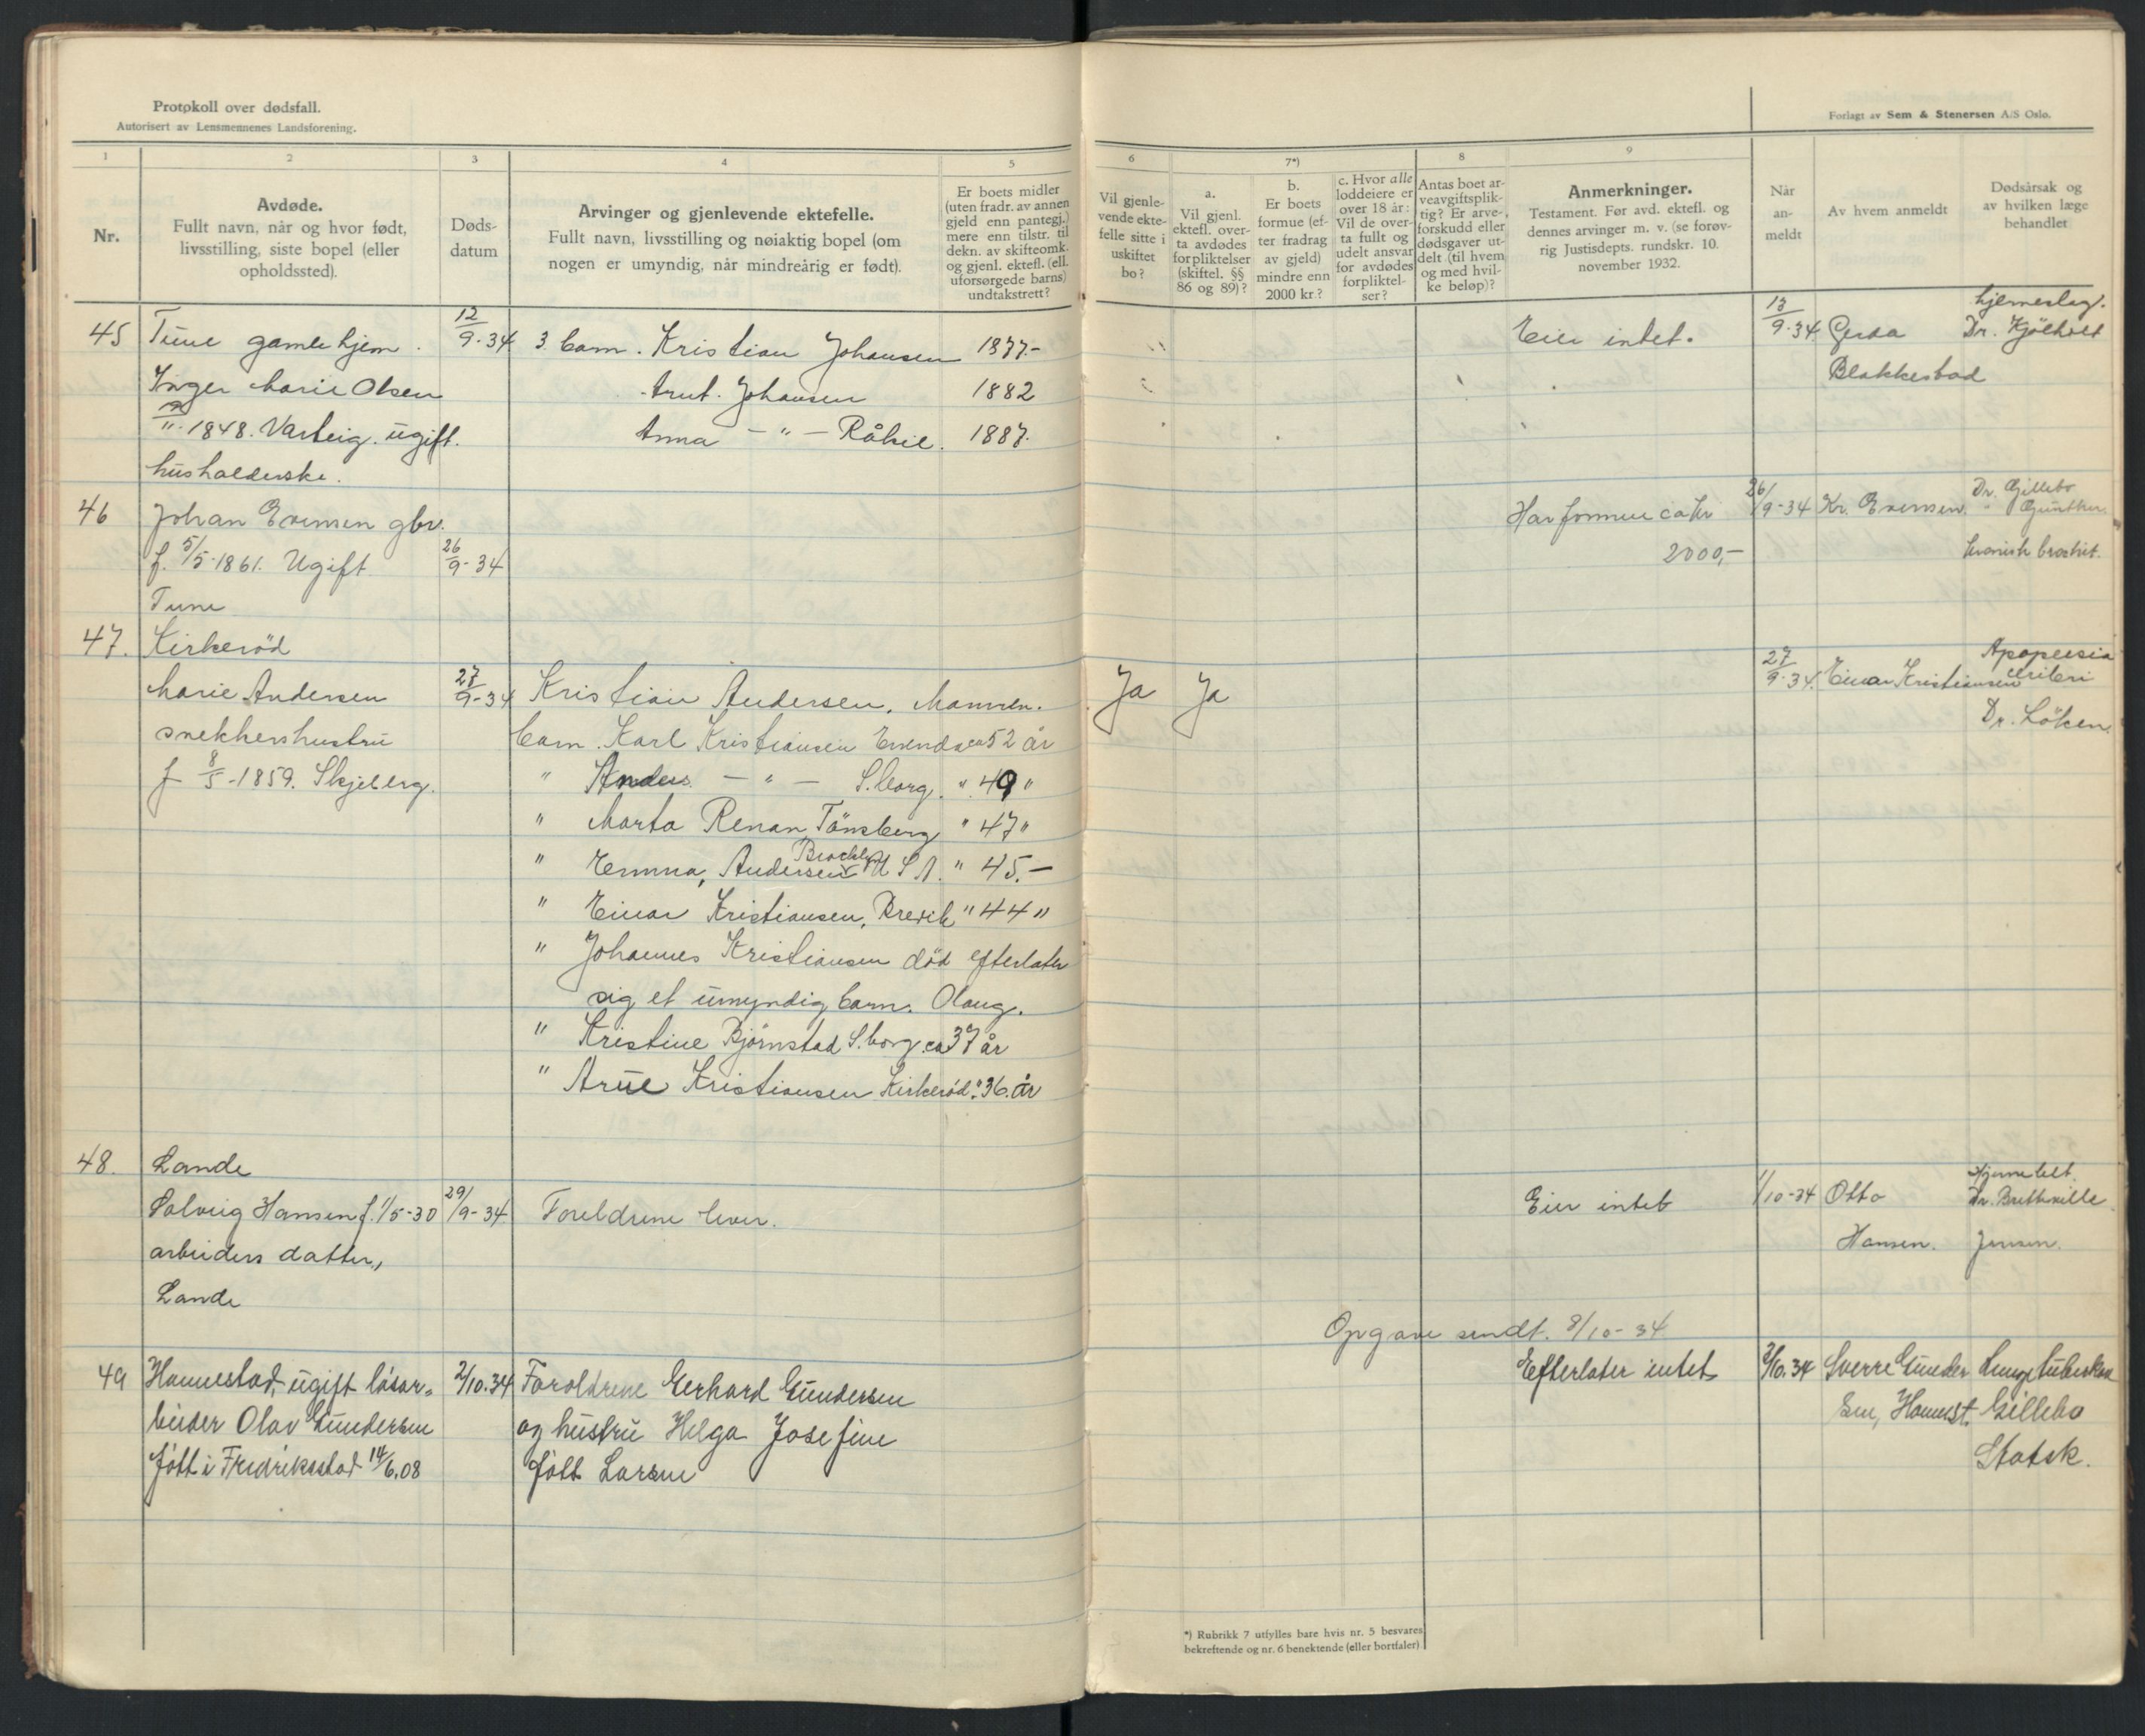 Protokoll over dødsfall.
Autorisert av Lensmennenes Landsforening.
Forlagt av Sem & Stenersen A/S Oslo.
1
2
3
4
5
6
7*)
8
9
Nr.
Avdøde.
Fullt navn, når og hvor født,
livsstilling, siste bopel (eller
opholdssted).
Døds-
datum
Arvinger og gjenlevende ektefelle.
Fullt navn, livsstilling og nøiaktig bopel (om
nogen er umyndig, når mindreårig er født).
Er boets midler
(uten fradr. av annen
gjeld enn pantegj.)
mere enn tilstr. til
dekn. av skifteomk.
og gjenl. ektefl. (ell.
uforsørgede barns)
undtakstrett?
Vil gjenle-
vende ekte-
felle sitte i
uskiftet
bo?
a.
Vil gjenl.
ektefl. over-
ta avdødes
forpliktelser
(skiftel. §§
86 og 89)?
b.
Er boets
formue (ef-
ter fradrag
av gjeld)
mindre enn
2000 kr.?
c. Hvor alle
loddeiere er
over 18 år:
Vil de over-
ta fullt og
udelt ansvar
for avdødes
forpliktel-
ser?
Antas boet ar-
veavgiftsplik-
tig? Er arve-
forskudd eller
dødsgaver ut-
delt (til hvem
og med hvil-
ke beløp)?
Anmerkninger.
Testament. Før avd. ektefl. og
dennes arvinger m. v. (se forøv-
rig Justisdepts. rundskr. 10.
november 1932.
Når
an-
meldt
Av hvem anmeldt
Dødsårsak og
av hvilken læge
behandlet
45 Tune gamle hjem. 12/9-34 3 barn. Kristian Johansen 1877.- Eier intet. 13/9-34 Gerda hjerneslag. Dr. Kjölholt
Inger Marie Olsen Arnt. Johansen 1882 Blakkestad
1848. Varteig. ugift. Anna - " - Råkil. 1887.
husholderske.
46 Johan Evensen gbr. Har formue ca kr 26/9-34 Kr. Evensen. Dr. Gillebo
" Günther.
f. 5/5-1861. Ugift 26/9-34 2000,- kronisk bronkit.
Tune
47. Kirkeröd
Marie Andersen 27/9-34 Kristian Andersen, Mannen. Ja Ja 27/9-34. Einar Kristiansen
snekkerhustru Barn. Karl Kristiansen ca 52 år Dr. Löken.
f 8/5-1859. Skjeberg. " Anders - " - S.borg. " 49 "
" Marta Renan, Tönsberg " 47 "
" Emma, Andersen U S A. " 45.-
" Einar Kristiansen, Brevik " 44 "
" Johannes Kristiansen död efterlater
sig et umyndig barn. Olaug.
" Kristine Björnstad S.borg ca 37 år
" Arne Kristiansen Kirkeröd " 36. år
48. Lande
Solveig Hansen f. 1/5-30 29/9-34 Foreldrene lever. Eier intet 1/10-34 Otto Dr. Bretteville
arbeiders datter, Hansen. Jensen.
Lande
Opgave sendt. 8/10-34
49 Hannestad, ugift lösar- 2/10.34 Foreldrene Gerhard Gundersen Efterlater intet 3/10.34 Sverre Gunder Lungetuberkul
beider Olav Gundersen og hustru Helga Josefine sen, Hannest. Gillebo
født i Fredriksstad 14/6.08 født Larsen Statsk.
*) Rubrikk 7 utfylles bare hvis nr. 5 besvares
bekreftende og nr. 6 benektende (eller bortfaler)